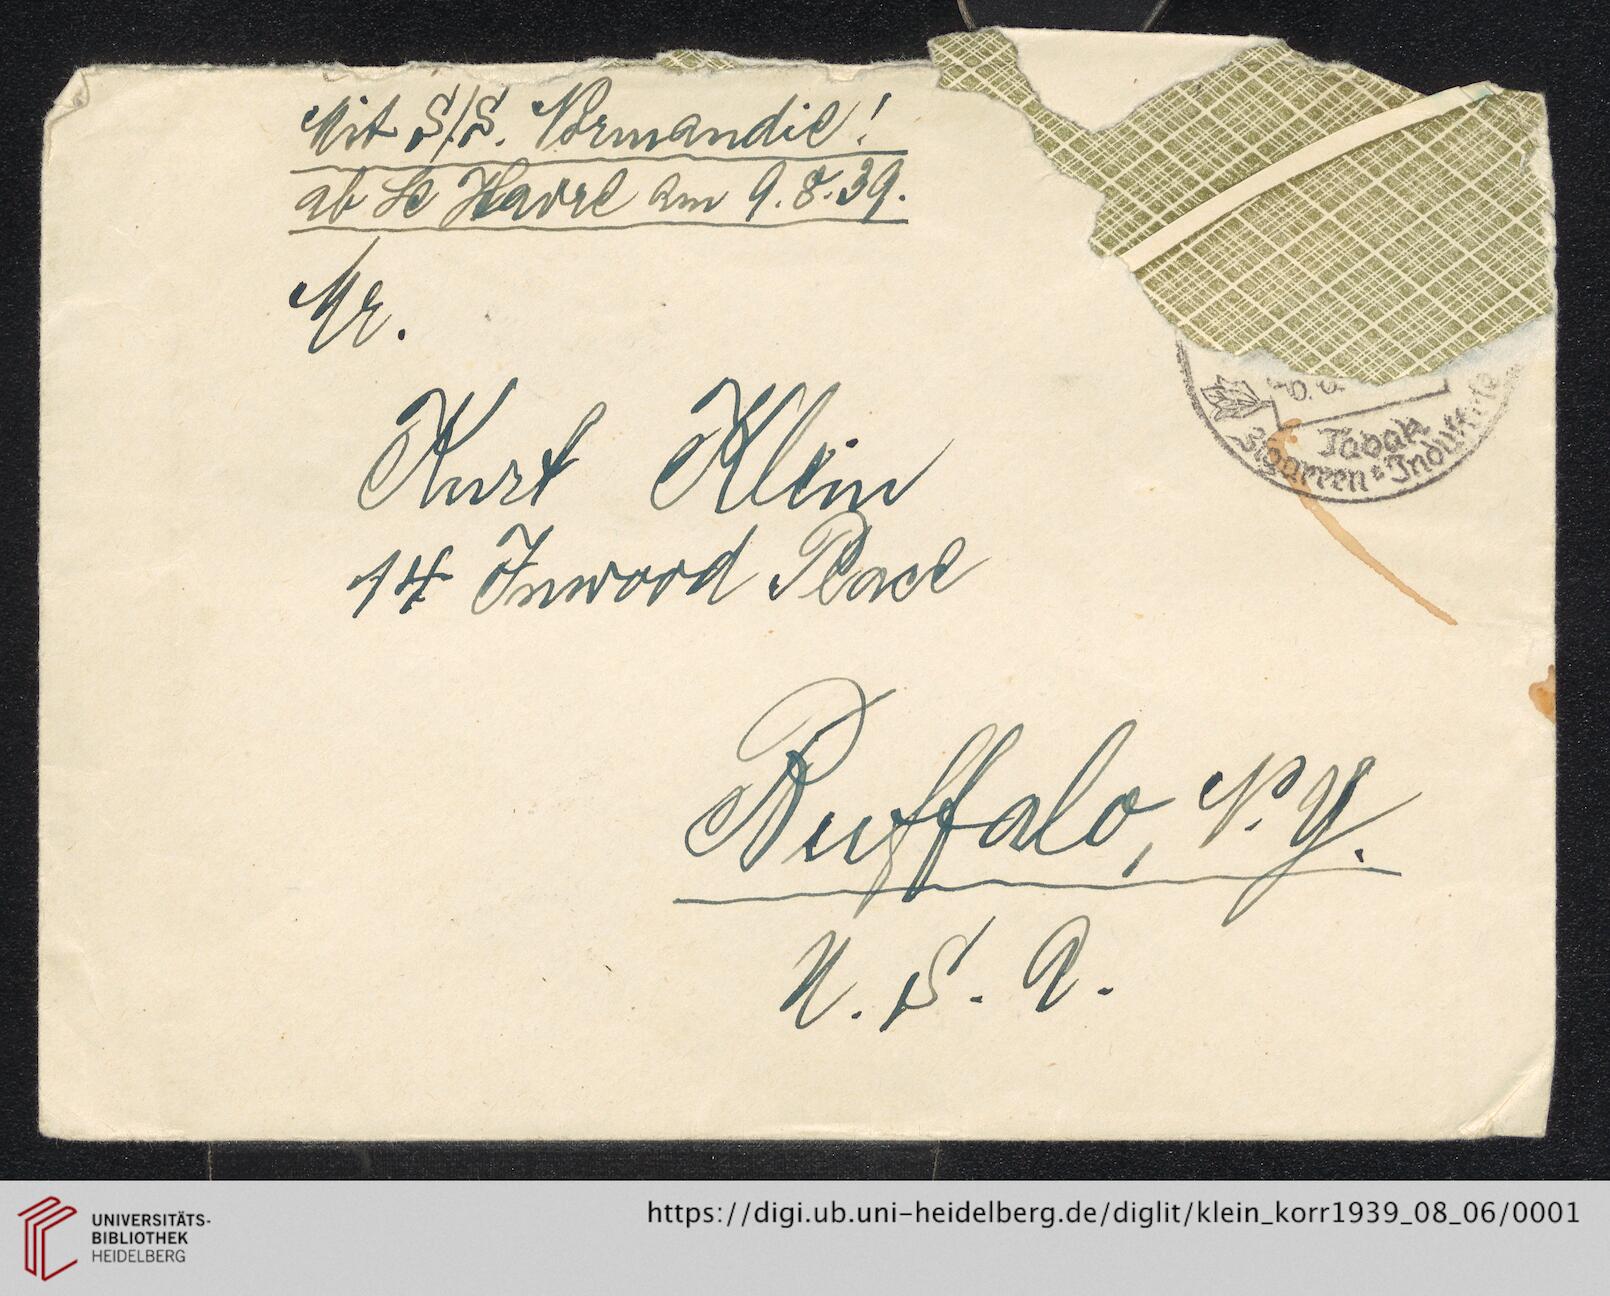 Mit S/S. Normandie!
ab Le Havre am 9.8.39.
Mr.
Kurt Klein
14 Inwood Place
Buffalo, N.Y.
U.S.A.
Tabak
Zigarren=Industrie
UNIVERSITÄTS-
BIBLIOTHEK
HEIDELBERG
https://digi.ub.uni-heidelberg.de/diglit/klein_korr1939_08_06/0001